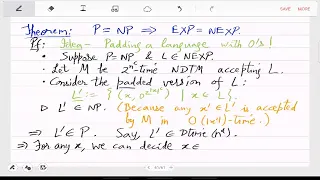 Theorem: P = NP ⟹ EXP = NEXP.
Pf: Idea - Padding a language with 0's!
• Suppose P=NP & L ∈ NEXP.
• Let M be 2^{n^c}-time NDTM accepting L.
• Consider the padded version of L:
L' := { (x, 0^{2^{|x|^c}}) | x ∈ L }.
▷ L' ∈ NP. (Because any x' ∈ L' is accepted
by M in O(|x'|)-time.)
⟹ L' ∈ P. Say, L' ∈ Dtime(n^d).
⟹ For any x, we can decide x ∈